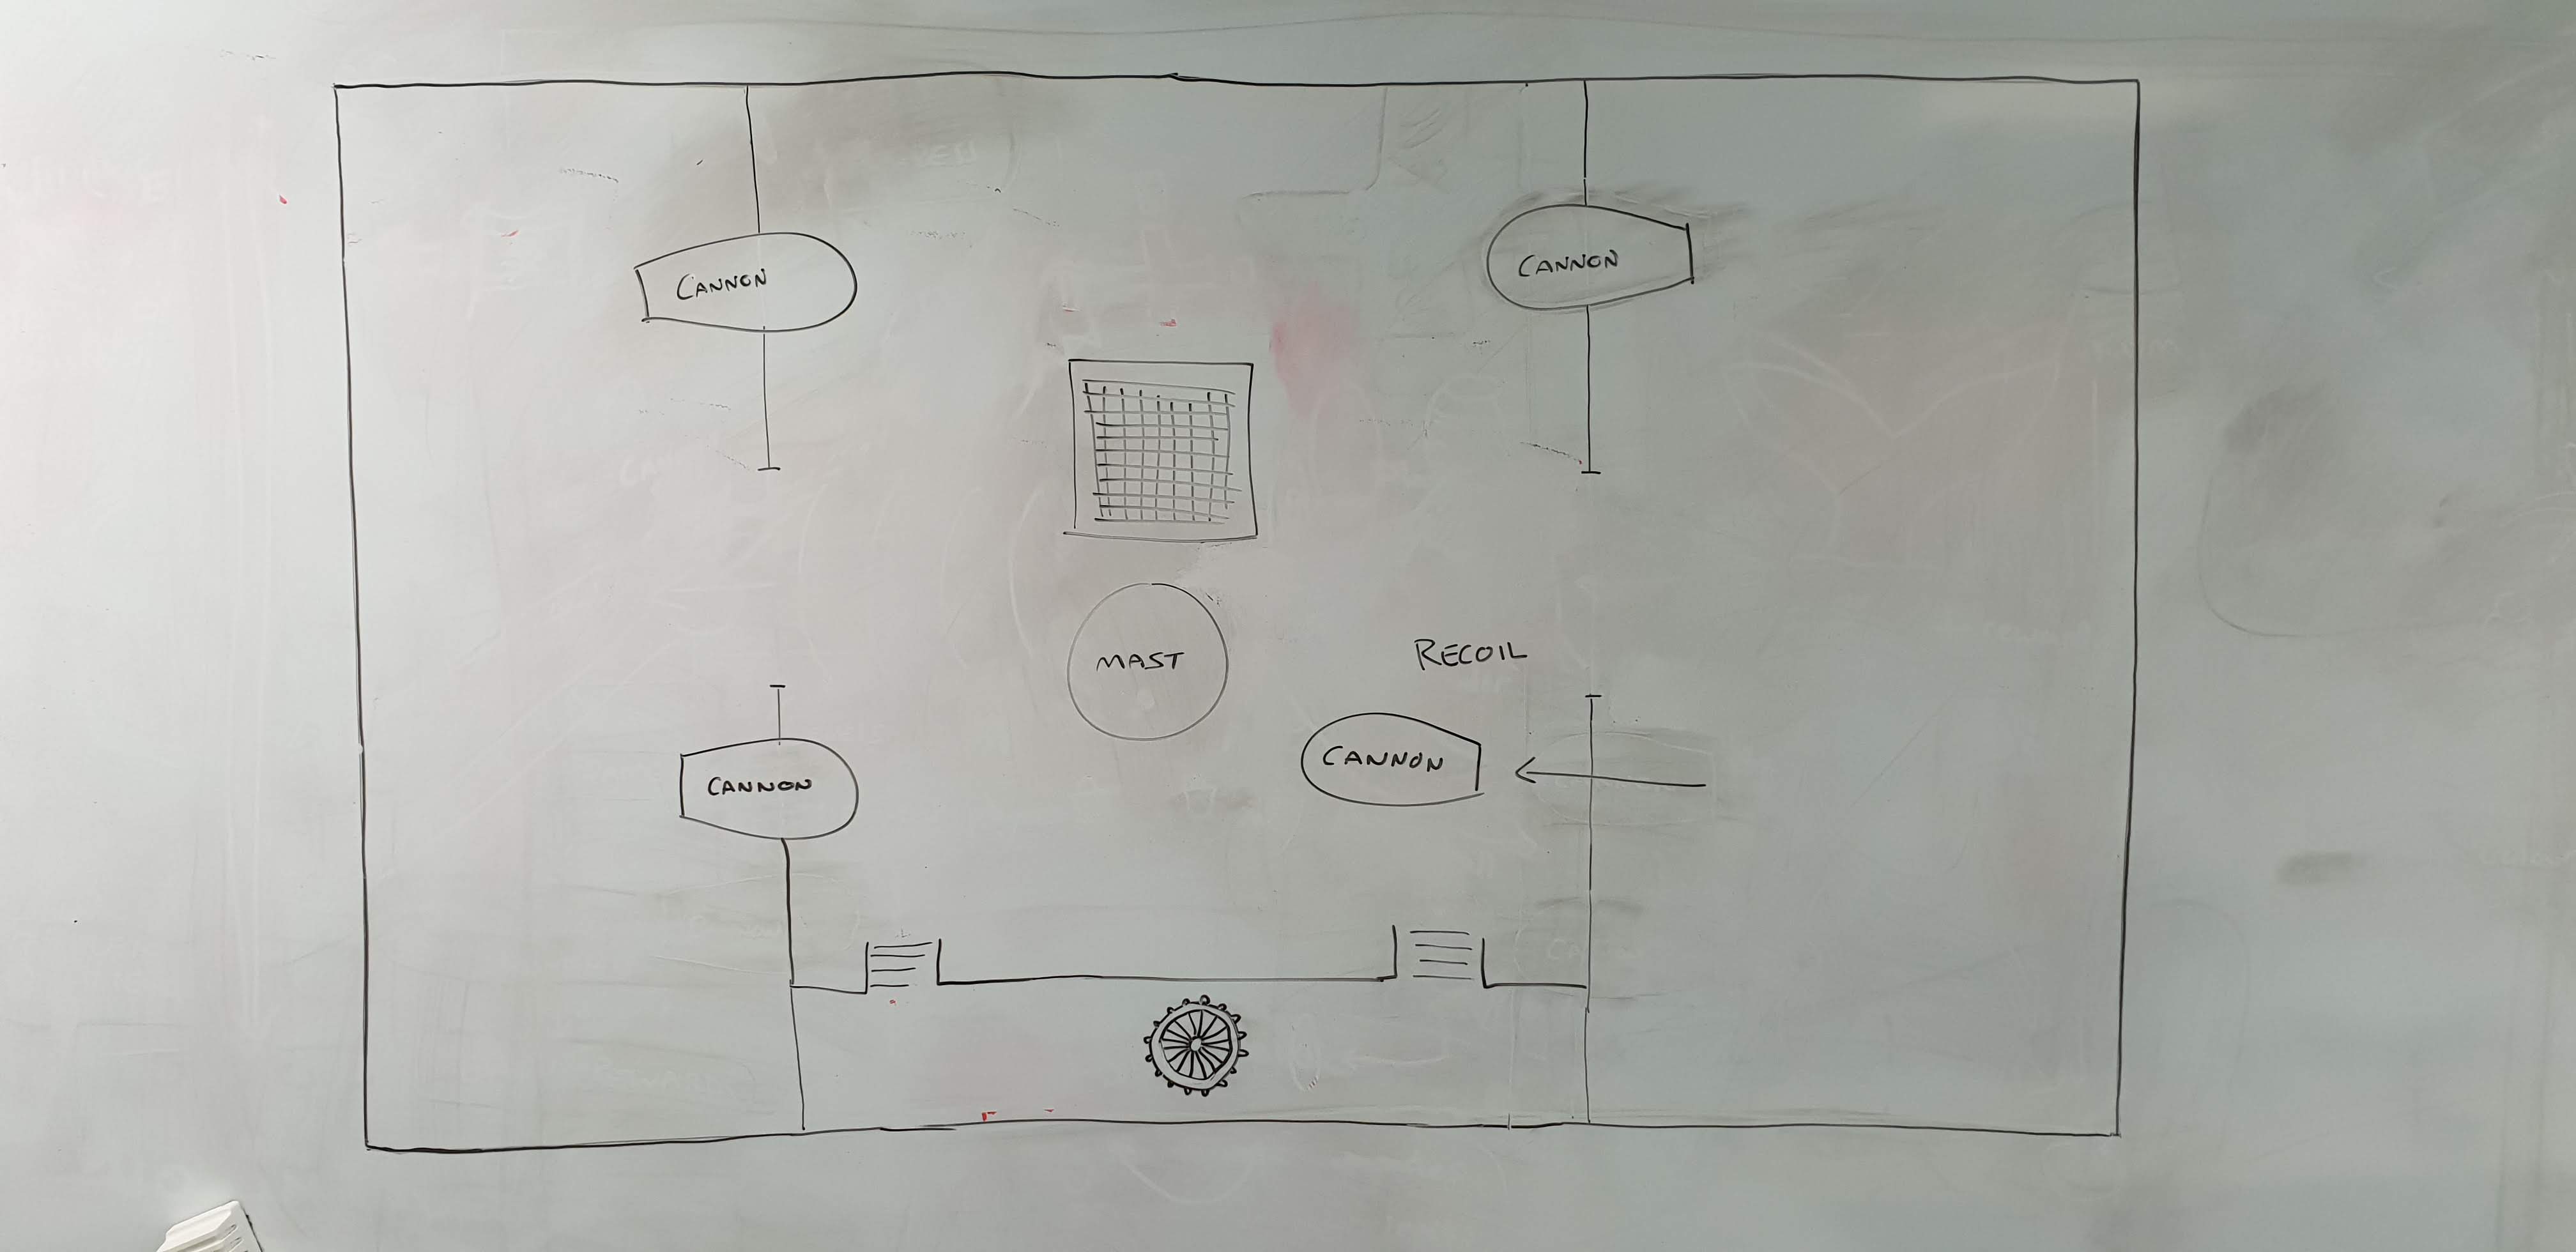 CANNON
CANNON
MAST
RECOIL
CANNON
CANNON